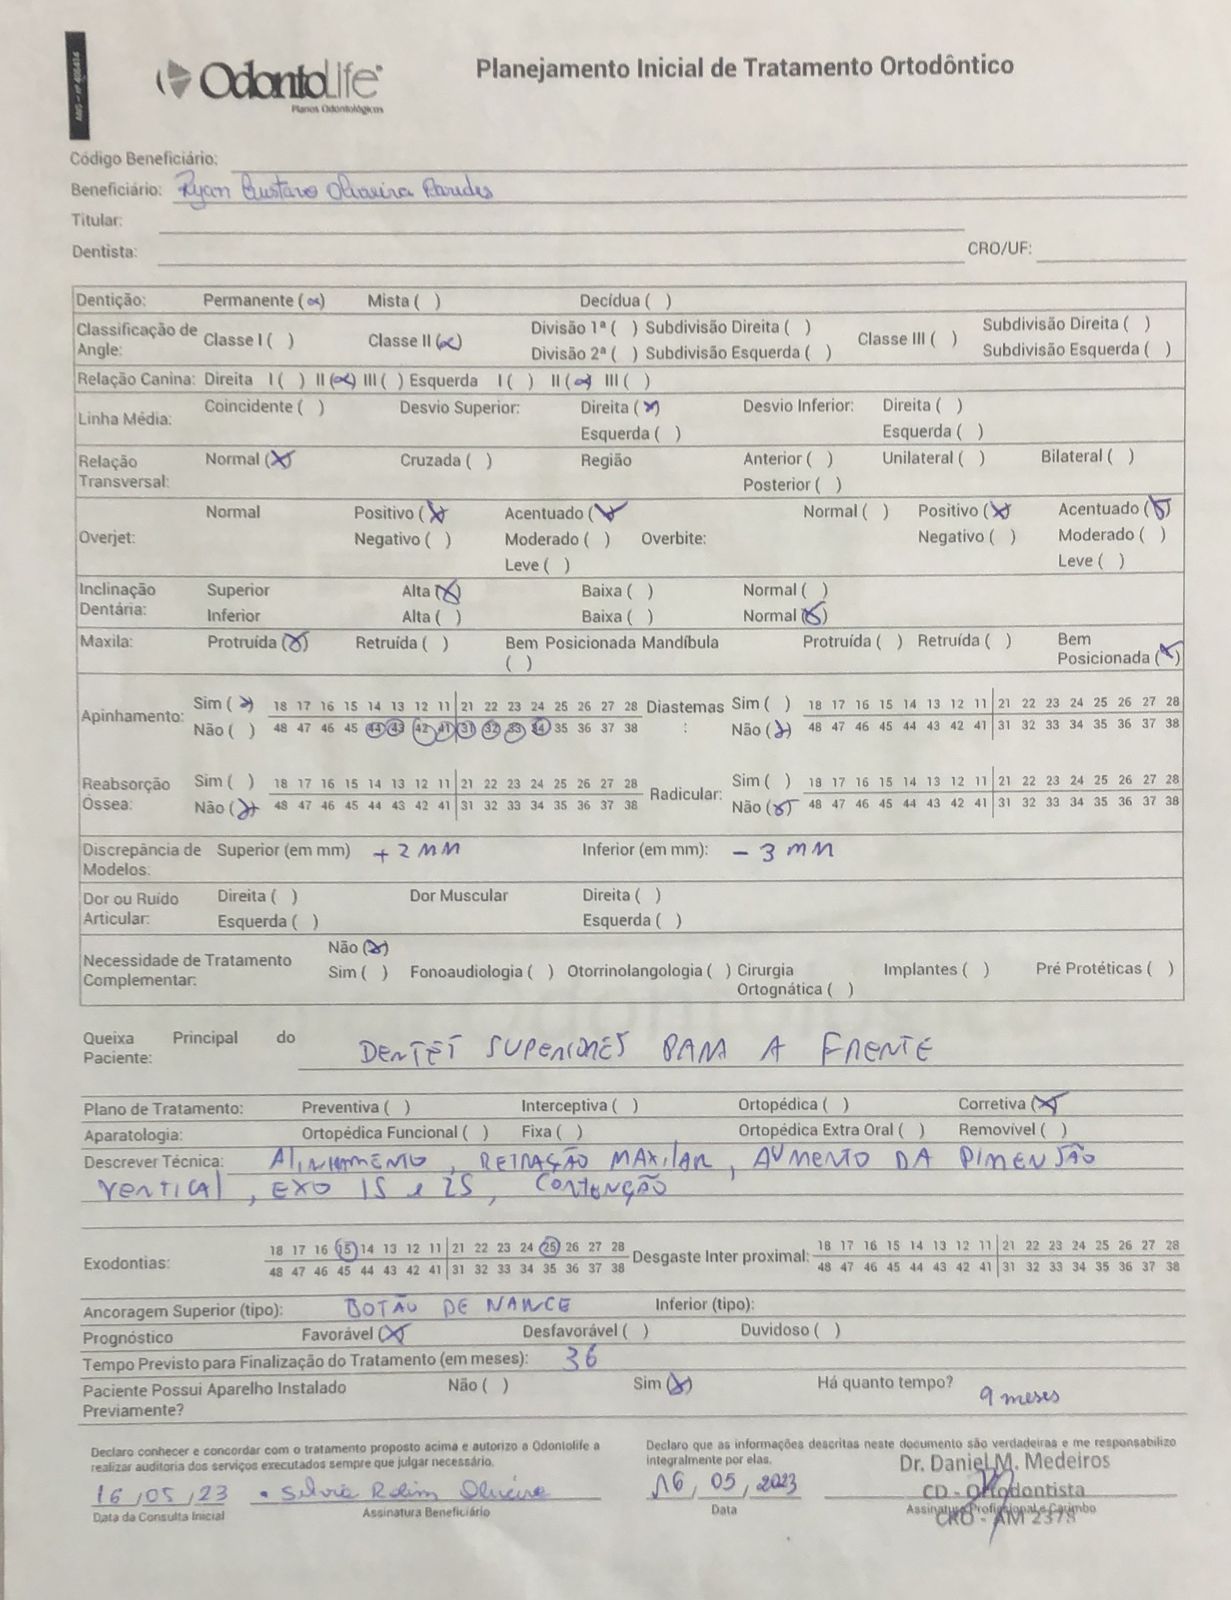 ANS - nº 406414
OdontoLife®
Planos Odontológicos
Planejamento Inicial de Tratamento Ortodôntico
Código Beneficiário:
Beneficiário: Ryan Gustavo Oliveira Paredes
Titular:
Dentista: CRO/UF:
Dentição: Permanente (x) Mista ( ) Decídua ( )
Classificação de Angle: Classe I ( ) Classe II (x) Divisão 1ª ( ) Subdivisão Direita ( ) Classe III ( ) Subdivisão Direita ( )
Divisão 2ª ( ) Subdivisão Esquerda ( ) Subdivisão Esquerda ( )
Relação Canina: Direita I ( ) II (x) III ( ) Esquerda I ( ) II (x) III ( )
Linha Média: Coincidente ( ) Desvio Superior: Direita (x) Desvio Inferior: Direita ( )
Esquerda ( ) Esquerda ( )
Relação Transversal: Normal (x) Cruzada ( ) Região Anterior ( ) Unilateral ( ) Bilateral ( )
Posterior ( )
Overjet: Normal Positivo (x) Acentuado (x) Overbite: Normal ( ) Positivo (x) Acentuado (x)
Negativo ( ) Moderado ( ) Negativo ( ) Moderado ( )
Leve ( ) Leve ( )
Inclinação Dentária: Superior Alta (x) Baixa ( ) Normal ( )
Inferior Alta ( ) Baixa ( ) Normal (x)
Maxila: Protruída (x) Retruída ( ) Bem Posicionada ( ) Mandíbula Protruída ( ) Retruída ( ) Bem Posicionada (x)
Apinhamento: Sim (x) 18 17 16 15 14 13 12 11 21 22 23 24 25 26 27 28 Diastemas: Sim ( ) 18 17 16 15 14 13 12 11 21 22 23 24 25 26 27 28
Não ( ) 48 47 46 45 44 43 42 41 31 32 33 34 35 36 37 38 Não (x) 48 47 46 45 44 43 42 41 31 32 33 34 35 36 37 38
Reabsorção Óssea: Sim ( ) 18 17 16 15 14 13 12 11 21 22 23 24 25 26 27 28 Radicular: Sim ( ) 18 17 16 15 14 13 12 11 21 22 23 24 25 26 27 28
Não (x) 48 47 46 45 44 43 42 41 31 32 33 34 35 36 37 38 Não (x) 48 47 46 45 44 43 42 41 31 32 33 34 35 36 37 38
Discrepância de Modelos: Superior (em mm) + 2 MM Inferior (em mm): - 3 MM
Dor ou Ruído Articular: Direita ( ) Dor Muscular Direita ( )
Esquerda ( ) Esquerda ( )
Necessidade de Tratamento Complementar: Não (x)
Sim ( ) Fonoaudiologia ( ) Otorrinolangologia ( ) Cirurgia Ortognática ( ) Implantes ( ) Pré Protéticas ( )
Queixa Principal do Paciente: DENTES SUPERIORES PARA A FRENTE
Plano de Tratamento: Preventiva ( ) Interceptiva ( ) Ortopédica ( ) Corretiva (x)
Aparatologia: Ortopédica Funcional ( ) Fixa ( ) Ortopédica Extra Oral ( ) Removível ( )
Descrever Técnica: ALINHAMENTO, RETRAÇÃO MAXILAR, AUMENTO DA DIMENSÃO
VERTICAL, EXO 15 e 25, CONTENÇÃO
Exodontias: 18 17 16 15 14 13 12 11 21 22 23 24 25 26 27 28 Desgaste Inter proximal: 18 17 16 15 14 13 12 11 21 22 23 24 25 26 27 28
48 47 46 45 44 43 42 41 31 32 33 34 35 36 37 38 48 47 46 45 44 43 42 41 31 32 33 34 35 36 37 38
Ancoragem Superior (tipo): BOTÃO DE NANCE Inferior (tipo):
Prognóstico Favorável (x) Desfavorável ( ) Duvidoso ( )
Tempo Previsto para Finalização do Tratamento (em meses): 36
Paciente Possui Aparelho Instalado Previamente? Não ( ) Sim (x) Há quanto tempo? 9 meses
Declaro conhecer e concordar com o tratamento proposto acima e autorizo a Odontolife a
realizar auditoria dos serviços executados sempre que julgar necessário.
16/05/23 Silvia Rolim Oliveira
Data da Consulta Inicial Assinatura Beneficiário
Declaro que as informações descritas neste documento são verdadeiras e me responsabilizo
integralmente por elas.
16/05/2023
Data
Dr. Daniel M. Medeiros
CD - Ortodontista
Assinatura Profissional e Carimbo
CRO - AM 2378